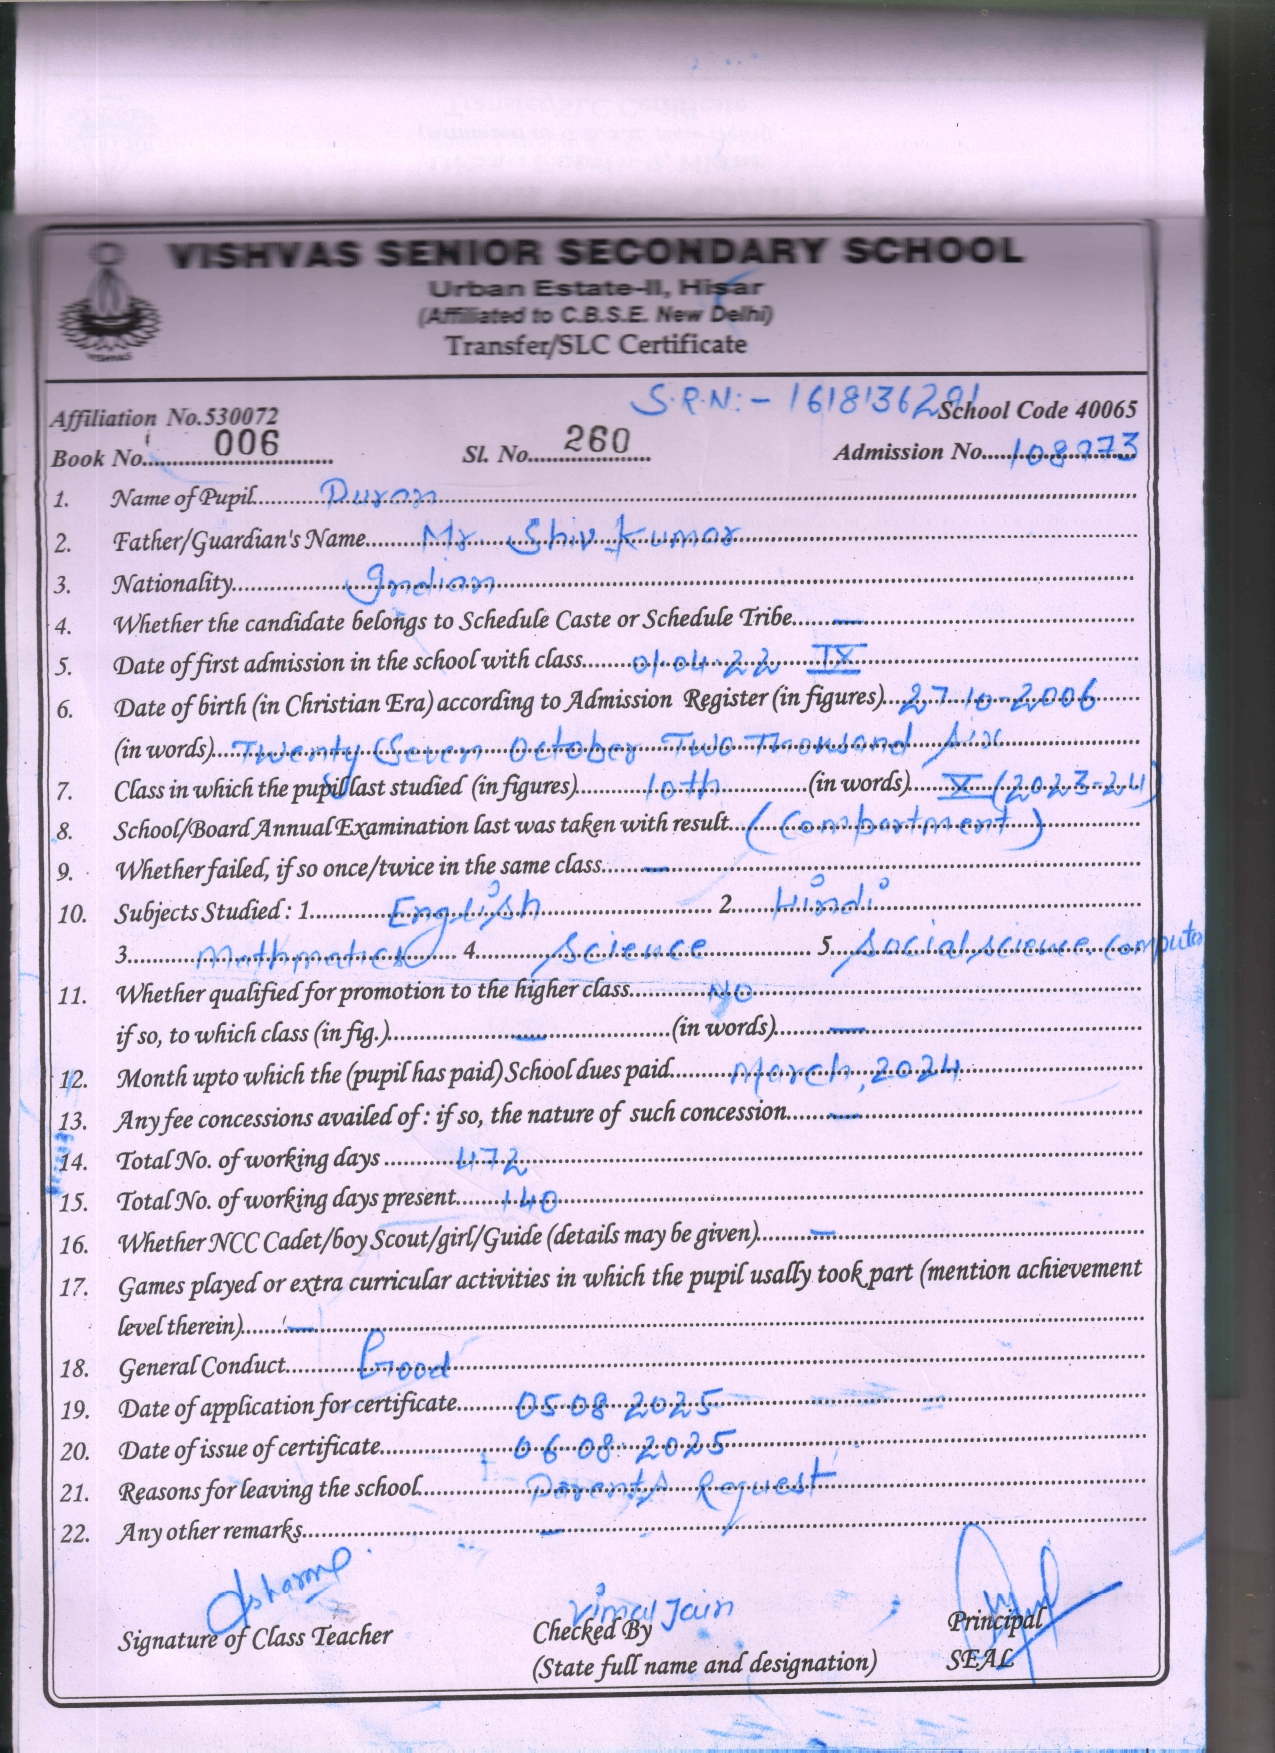 VISHVAS SENIOR SECONDARY SCHOOL
Urban Estate-II, Hisar
(Affiliated to C.B.S.E. New Delhi)
Transfer/SLC Certificate
VISHVAS
S.R.N:- 1618136291
Affiliation No.530072 School Code 40065
Book No. 006 Sl. No. 260 Admission No. 108973
1. Name of Pupil
2. Father/Guardian's Name Mr. Shiv Kumar
3. Nationality Indian
4. Whether the candidate belongs to Schedule Caste or Schedule Tribe —
5. Date of first admission in the school with class 01-04-22 IX
6. Date of birth (in Christian Era) according to Admission Register (in figures) 27-10-2006
(in words) Twenty Seven October Two Thousand Six
7. Class in which the pupil last studied (in figures) 10th (in words) X (2023-24)
8. School/Board Annual Examination last was taken with result (Combartment)
9. Whether failed, if so once/twice in the same class —
10. Subjects Studied : 1. English 2. Hindi
3. Mathmatics 4. Science 5. Social science, Computer
11. Whether qualified for promotion to the higher class NO
if so, to which class (in fig.) — (in words) —
12. Month upto which the (pupil has paid) School dues paid March, 2024
13. Any fee concessions availed of : if so, the nature of such concession —
14. Total No. of working days 472
15. Total No. of working days present 140
16. Whether NCC Cadet/boy Scout/girl/Guide (details may be given) —
17. Games played or extra curricular activities in which the pupil usally took part (mention achievement
level therein) —
18. General Conduct Good
19. Date of application for certificate 05-08-2025
20. Date of issue of certificate 06-08-2025
21. Reasons for leaving the school Parents Request
22. Any other remarks —
Sharma Vimal Jain
Signature of Class Teacher Checked By Principal
(State full name and designation) SEAL